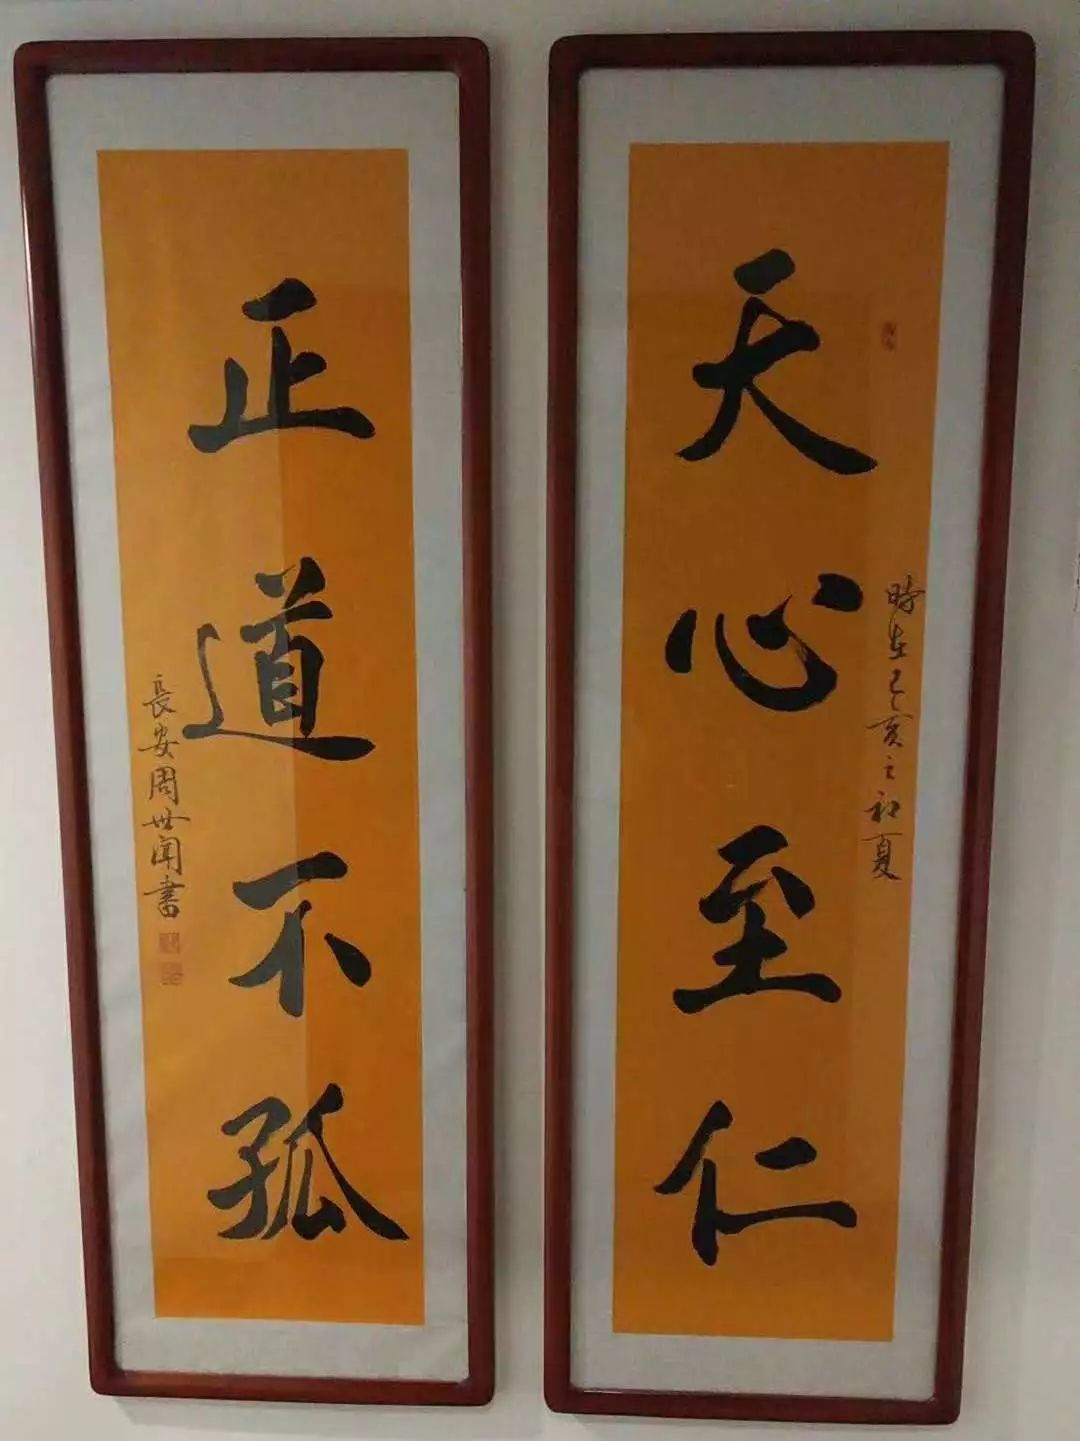 天心至仁
時在己亥之初夏
正道不孤
長安周世聞書